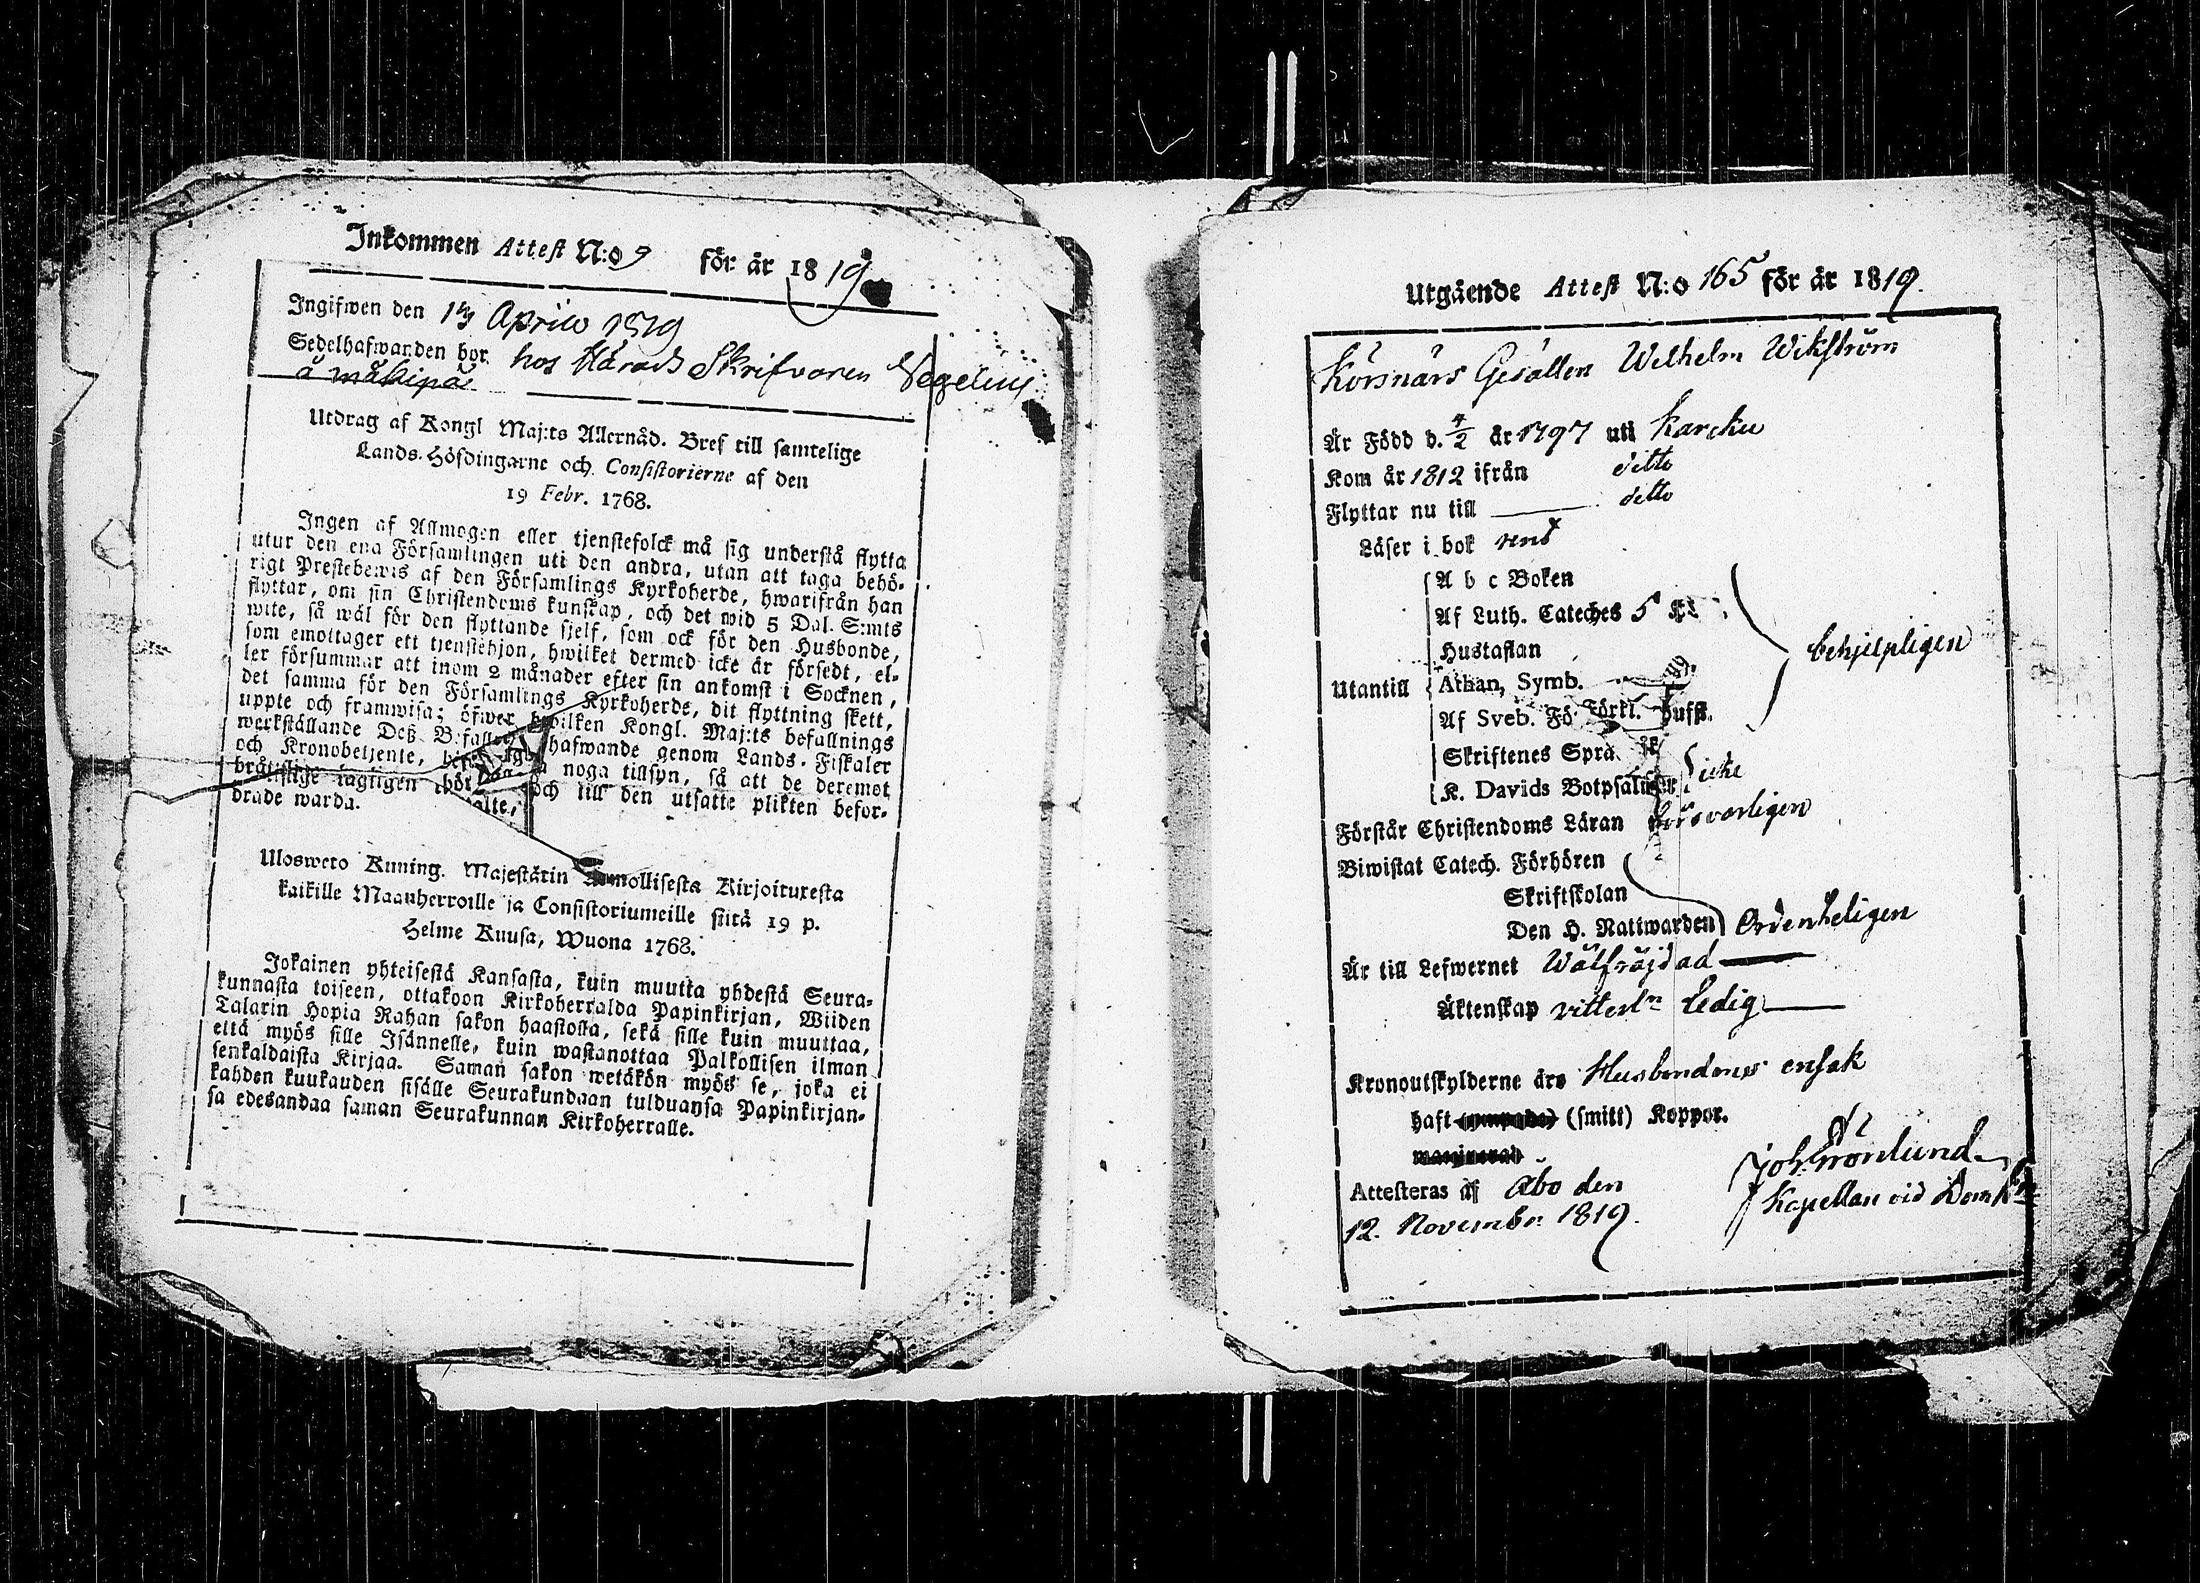 Inkommen Attest N:o 9 för år 1819
Ingifwen den Aprill 1819
Sedelhafwanden bor hos Härads Skrifvaren Segelius
å mäkipä
Utdrag af Kongl Maj:ts Allernåd. Bref till samtelige
Lands-Höfdingarne och Consistorierne af den
19 Febr. 1768.
Ingen af Allmogen eller tjenstefolck må sig understå flytta
utur den ena Församlingen uti den andra, utan att taga behö-
rigt Prestebewis af den Församlings Kyrkoherde, hwarifrån han
flyttar, om sin Christendoms kunskap, och det wid 5 Dal. S:mts
wite, så wäl för den flyttande sjelf, som ock för den Husbonde,
som emottager ett tjenstehjon, hwilket dermed icke är försedt, el-
ler försummar att inom 2 månader efter sin ankomst i Socknen,
det samma för den Församlings Kyrkoherde, dit flyttning skett,
uppte och framwisa; öfwer hwilken Kongl. Maj:ts befallnings
werkställande Deß Befallni hafwande genom Lands-Fiskaler
och Kronobetjente, noga tillsyn, så att de deremot
bråttslige lagligen och till den utsatte plikten befor-
drade warda.
Uloswero Kuning. Majestätin Armollisesta Kirjoituxesta
kaikille Maanherroille ja Consistoriumeille siitä 19 p.
Helme Kuusa, Wuona 1768.
Jokainen yhteisestä Kansasta, kuin muutta yhdestä Seura-
kunnasta toiseen, ottakoon Kirkoherralda Papinkirjan, Wiiden
Talarin Hopia Rahan sakon haastolla, sekä sille kuin muuttaa,
että myös sille Isännelle, kuin wastanottaa Palkollisen ilman
senkaldaista Kirjaa. Saman sakon wetäkön myös se, joka ei
kahden kuukauden sisälle Seurakundaan tulduansa Papinkirjan-
sa edesandaa saman Seurakunnan Kirkoherralle.
Utgående Attest N:o 165 för år 1819.
Körsnärs Gesällen Wilhelm Wikström
Är Född d. 4/2 år 1797 uti Karcku
Kom år 1812 ifrån ditto
Flyttar nu till ditto
Läser i bok rent
A b c Boken
Af Luth. Cateches 5
Hustaflan
Utantill Athan, Symb. behjelpligen
Af Sveb. Förkl. Hufst.
Skriftenes Språk
K. Davids Botpsalmer icke
Förstår Christendoms Läran försvarligen
Biwistat Catech. Förhören
Skriftskolan
Den H. Nattwarden Ordenteligen
Är till Lefwernet Wälfräjdad
Äktenskap vitterl:n Ledig
Kronoutskylderne äro Husbondens ensak
haft (smitt) Koppor.
Attesteras af Åbo den
12. Novembr. 1819.
Joh. Grönlund
Kapellan vid Domk